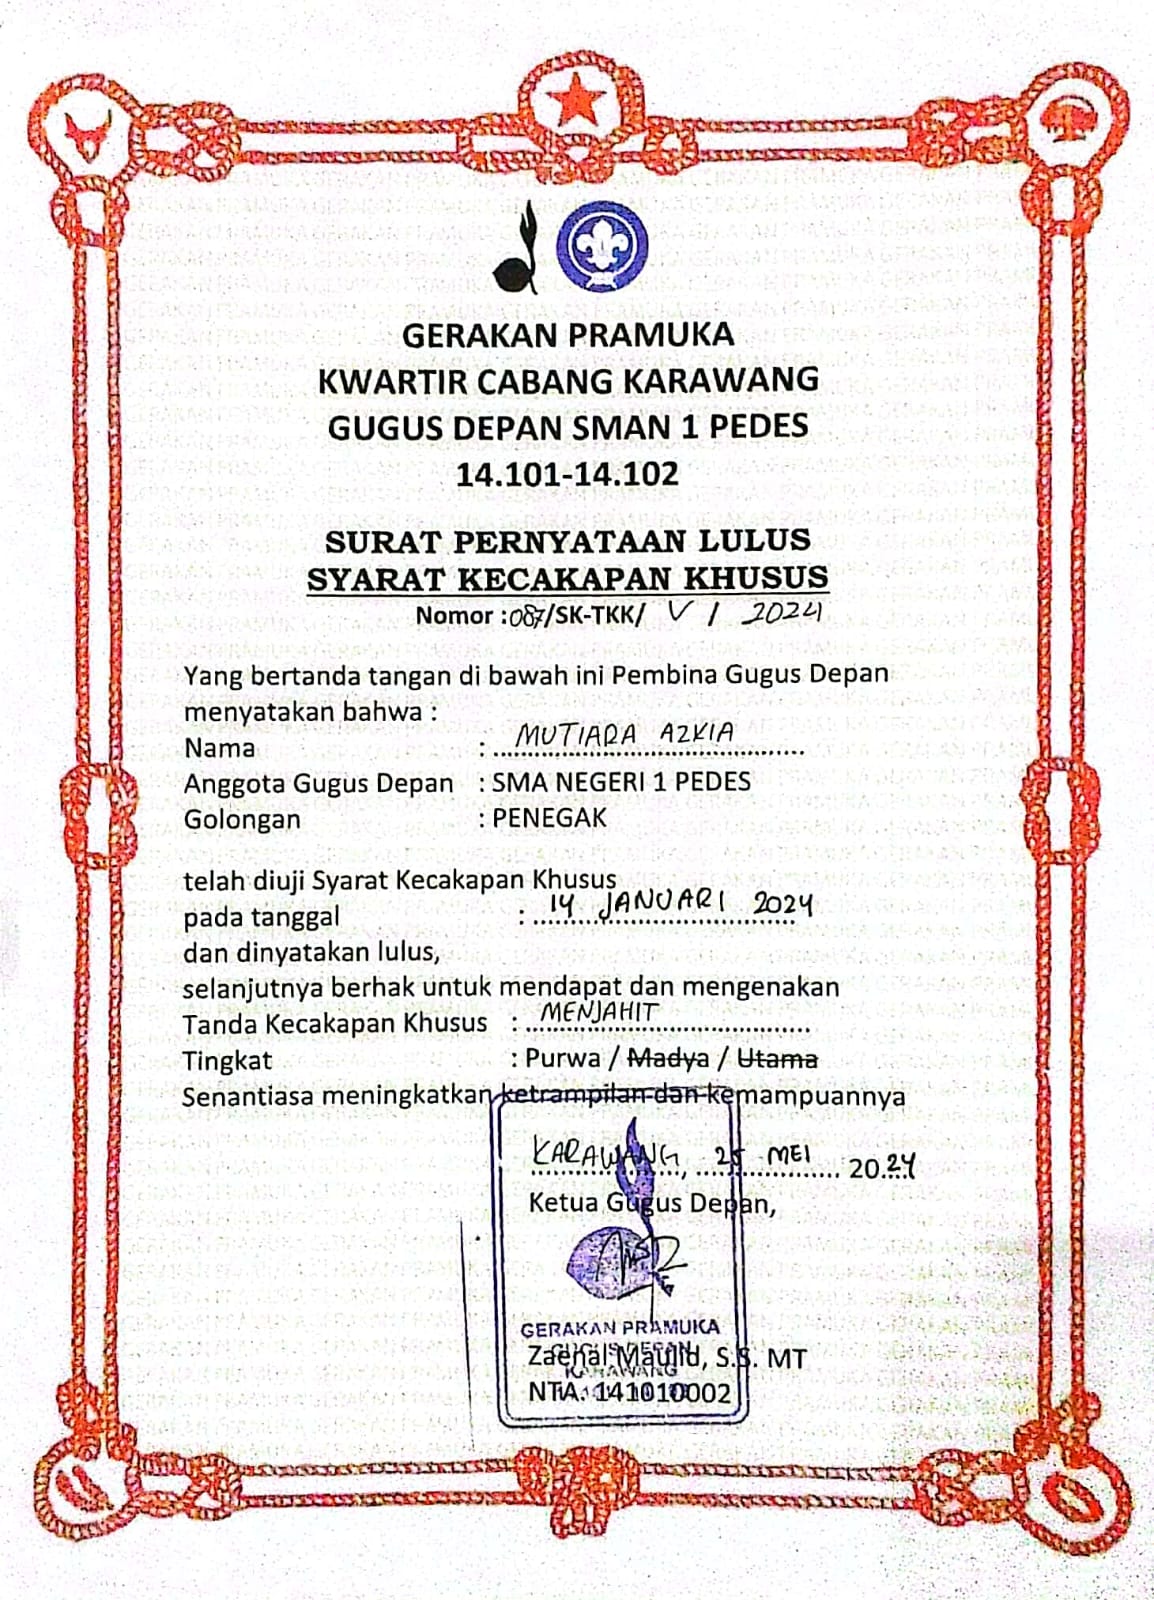 GERAKAN PRAMUKA
KWARTIR CABANG KARAWANG
GUGUS DEPAN SMAN 1 PEDES
14.101-14.102
SURAT PERNYATAAN LULUS
SYARAT KECAKAPAN KHUSUS
Nomor : 087/SK-TKK/ V / 2024
Yang bertanda tangan di bawah ini Pembina Gugus Depan
menyatakan bahwa :
Nama : MUTIARA AZKIA
Anggota Gugus Depan : SMA NEGERI 1 PEDES
Golongan : PENEGAK
telah diuji Syarat Kecakapan Khusus
pada tanggal : 14 JANUARI 2024
dan dinyatakan lulus,
selanjutnya berhak untuk mendapat dan mengenakan
Tanda Kecakapan Khusus : MENJAHIT
Tingkat : Purwa / Madya / Utama
Senantiasa meningkatkan ketrampilan dan kemampuannya
KARAWANG, 25 MEI 2024
Ketua Gugus Depan,
GERAKAN PRAMUKA
GUGUS DEPAN
KARAWANG
Zaenal Maulid, S.S. MT
NTA. 141010002